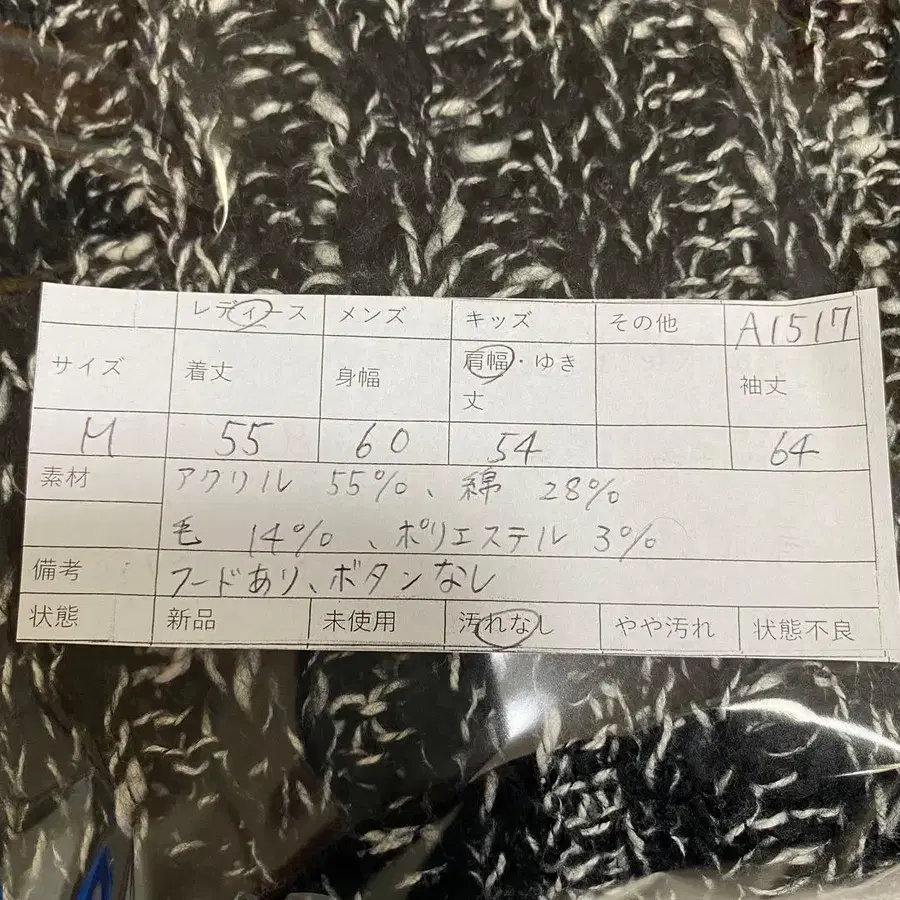 レディース メンズ キッズ その他 A1517
サイズ 着丈 身幅 肩幅・ゆき丈 袖丈
M 55 60 54 64
素材 アクリル 55%、綿 28%
毛 14%、ポリエステル 3%
備考 フードあり、ボタンなし
状態 新品 未使用 汚れなし やや汚れ 状態不良